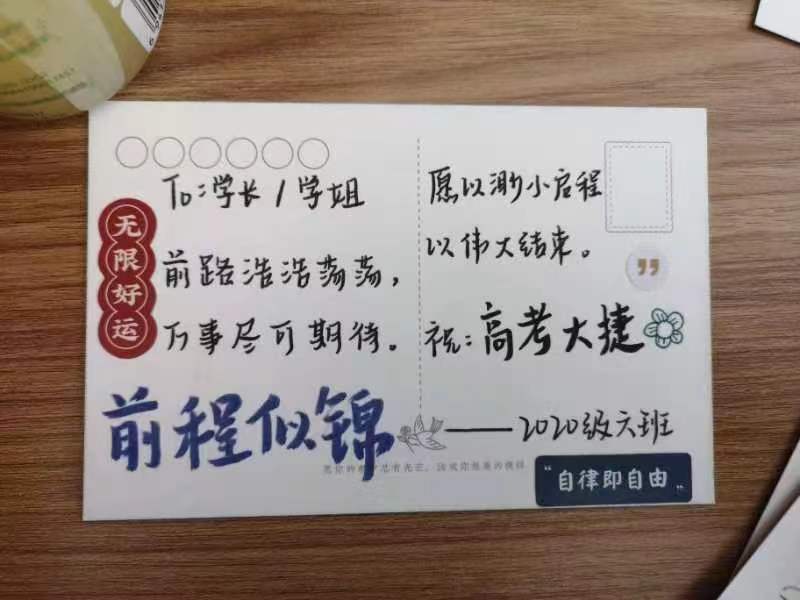 To:学长/学姐
无限好运
前路浩浩荡荡，
万事尽可期待。
前程似锦
愿以渺小启程
以伟大结束。
祝:高考大捷
——2020级六班
"自律即自由"